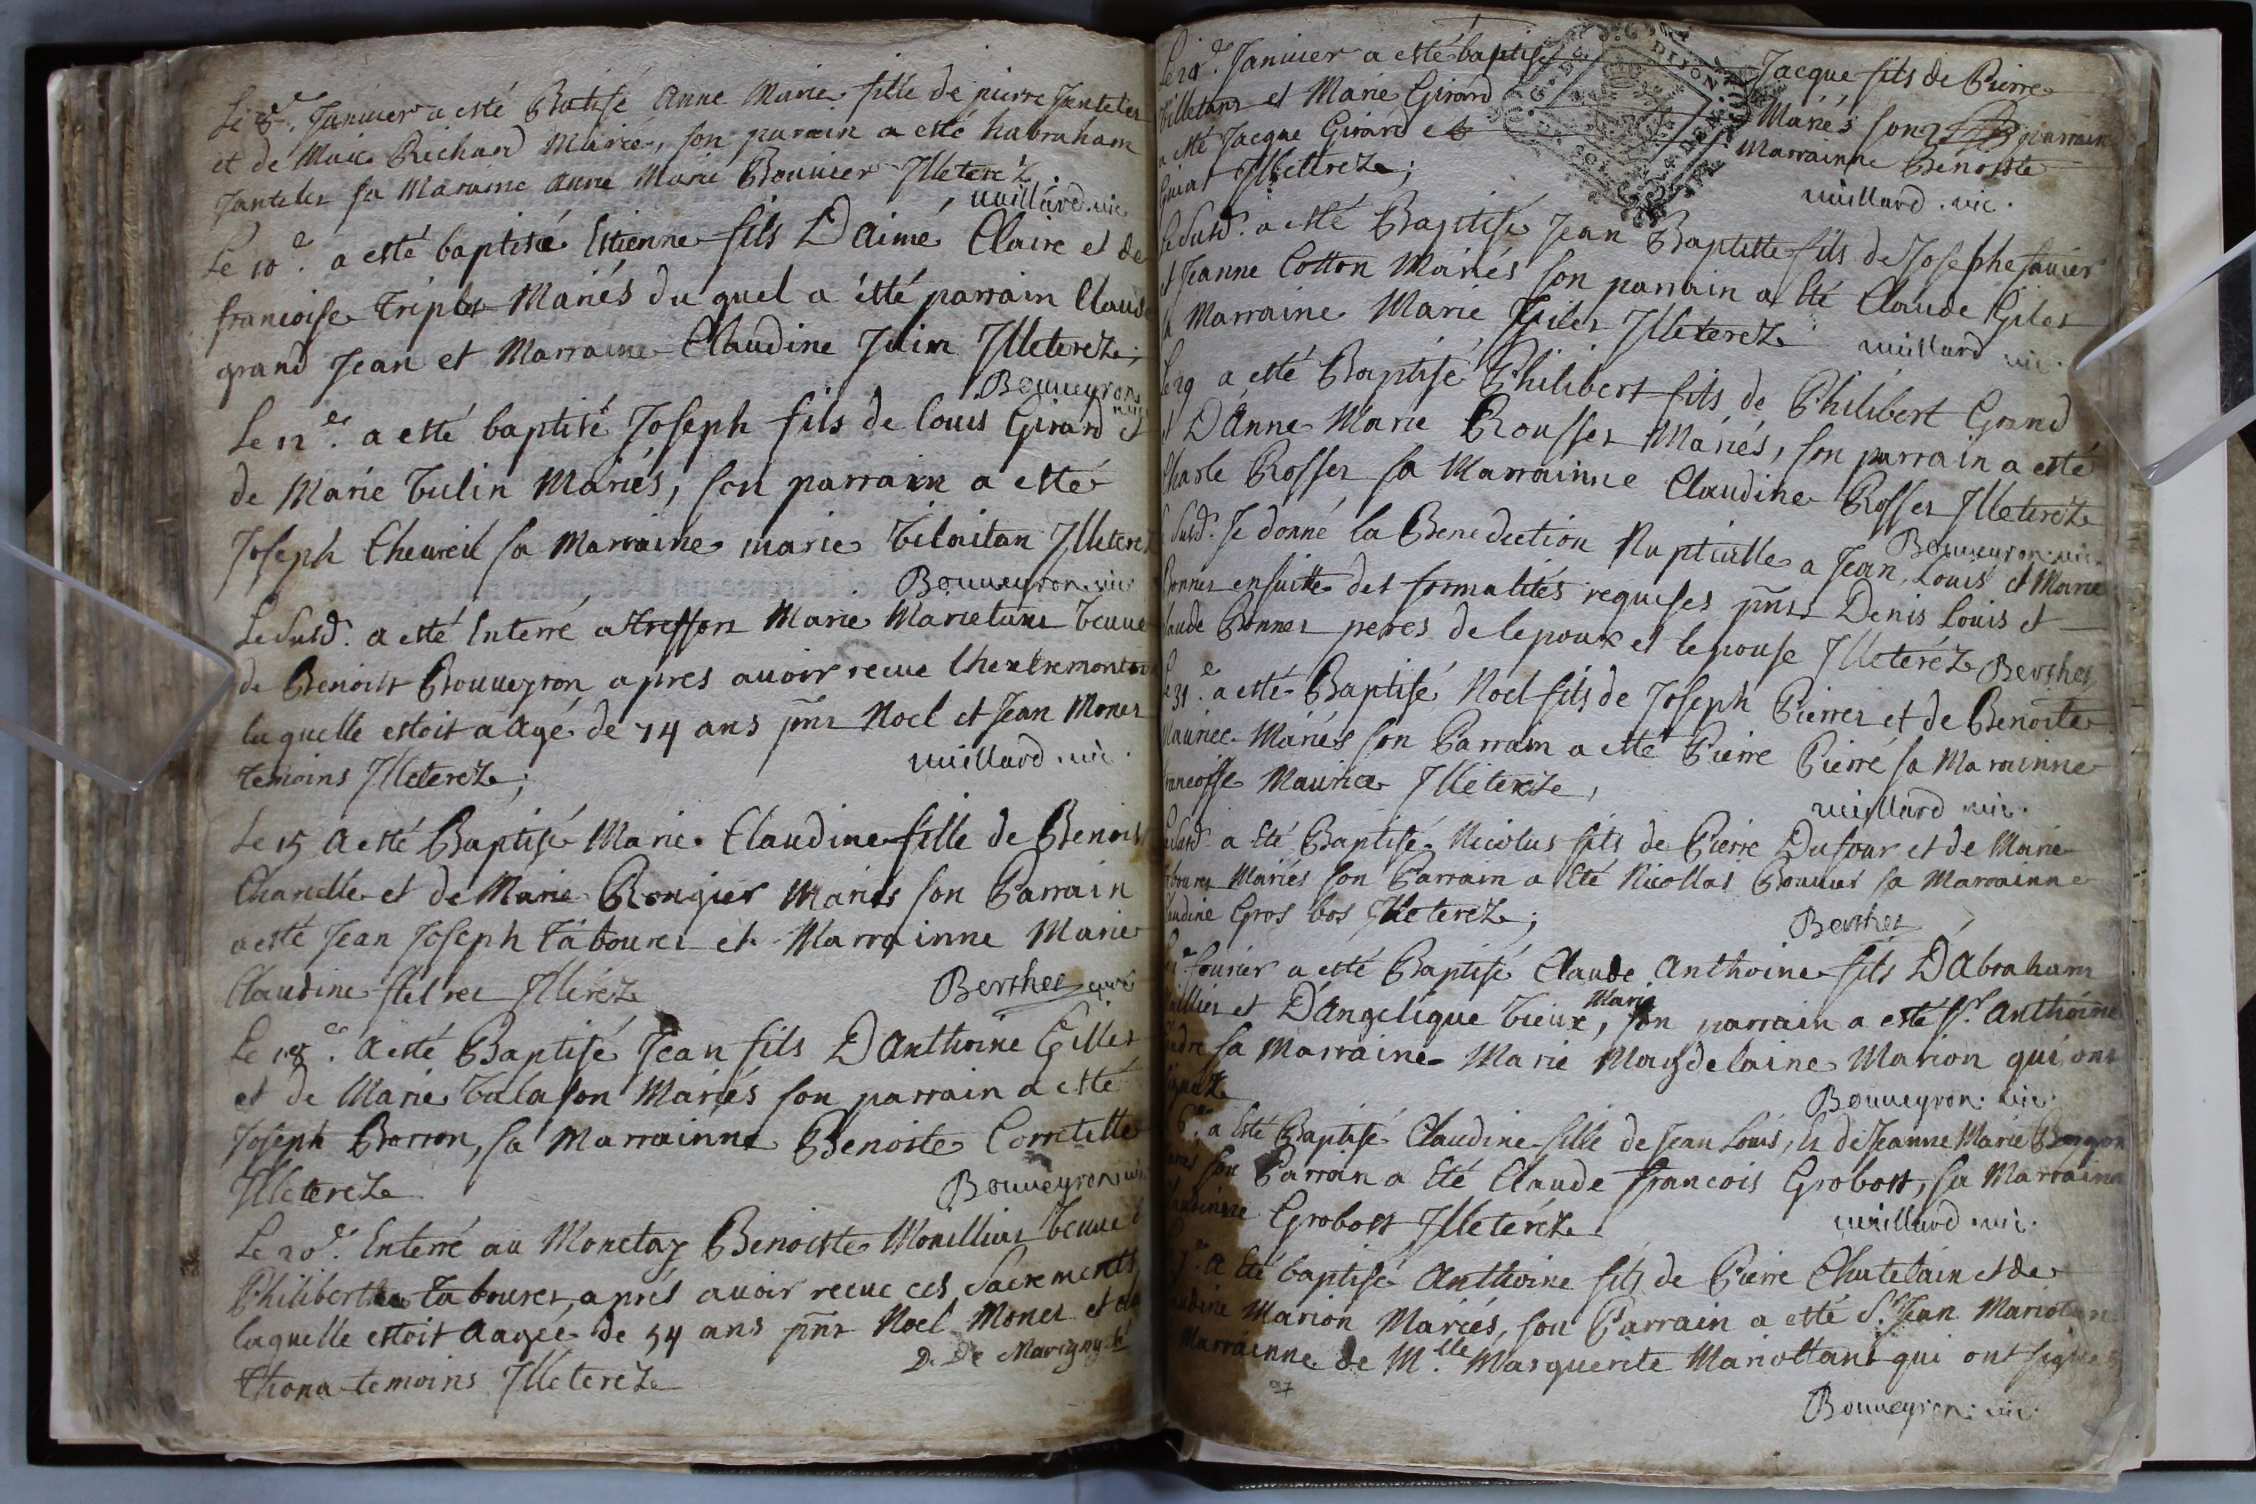 Le 8e. Janvier a esté Batisé Anne Marie fille de pierre Janteler
et de Marie Richard Mariés, son parain a esté habraham
Janteler sa Maraine Anne Marie Bouvier Illeterez
Le 10e. a esté baptisé Estienne fils D'aimé Claire et de
francoise Triplet Mariés du quel a étté parrain Claude
grand Jean et Marraine Claudine Juin Illeterez;
Bouveyron vic
Le 12e. a esté baptisé Joseph fils de Louis Girard et
de Marie tulin Mariés, son parrain a esté
Joseph Chevreil sa Marraine marie
Bouveyron. vic
Le Susd. a esté Enterré a treffort Marie Marietant veuve
de Benoist Bouveyron apres avoir receue
laquelle estoit aAgé de 74 ans pñts Noel et Jean Moner
temoins Illeterez;
Le 15 a esté Baptisé Marie Claudine fille de Benoist
Charelle et de Marie Rongier Mariés son Parrain
a esté Jean Joseph tabourer et Marrainne Marie
Claudine Illiréz
Berthet curé
Le 18e. a esté Baptisé Jean fils D'Anthoine Gillet
et de Marie talason Mariés son parrain a esté
Joseph Borron, sa Marrainne Benoiste Corretette
Illeterez
Bouveyron vic
Le 20e. Enterré au Monetay Benoiste Monillias veuve d
Philiberthe tabourer, aprés avoir receue ces Sacrements
laquelle estoit aagée de 54 ans pñts Noel Moner et
thona temoins Illeterez
D. De Marigny
Janvier a esté baptisé Jacque fils de Pierre
et Marie Girard Mariés son parrain
a esté Jacque Girard et Marrainne Benoiste
Illettrez;
Le Susd. a esté Baptisé Jean Baptiste fils de Josephe Javier
et Jeanne Cotton Mariés son parrain a Eté Claude Giler
la Marraine Marie Giler Illeterez
Le 29 a esté Baptisé Philibert fils de Philibert Grand
et D'Anne Marie Rousset Mariés, son parrain a esté
Charle Rosset sa Marrainne Claudine Rosset Illeterez
Bouveyron. vic.
Susd. Je donné la Benediction Nuptialle a Jean Louis et Marie
Bonner ensuitte des formalités requises pñts Denis Louis et
Claude Bonner peres de lepoux et lepouse Illeteréz Berthet
Le 31e a esté Baptisé Noel fils de Joseph Pierrer et de Benoite
Maurice Mariés son Parrain a esté Pierre Pierré sa Marrainne
francoisse Maurice Illeterez,
a Eté Baptisé Nicolas fils de Pierre Dufour et de Marie
Mariés son Parrain a Eté Nicollas Bouvier sa Marrainne
Claudine Gros bos Illeterez;
Berthet
fevrier a esté Baptisé Claude Anthoine fils D'Abraham
et D'Angelique vieux, Mariés son parrain a esté Sr. Anthoine
sa Marraine Marie Magdelaine Marion qui ont
signéz
Bouveyron. vic.
6e. a Eté Baptisé Claudine fille de Jean Louis, Et de Jeanne Marie
son Parrain a Eté Claude francois Grobost, sa Marraine
Grobost Illeteréz
a Eté baptisé Anthoine fils de Pierre Chatelain et de
Claudine Marion Mariés, son Parrain a esté Sr. Jean Mariotan
Marrainne de Mlle. Marguerite Mariottant qui ont signez
Bouveyron. vic.